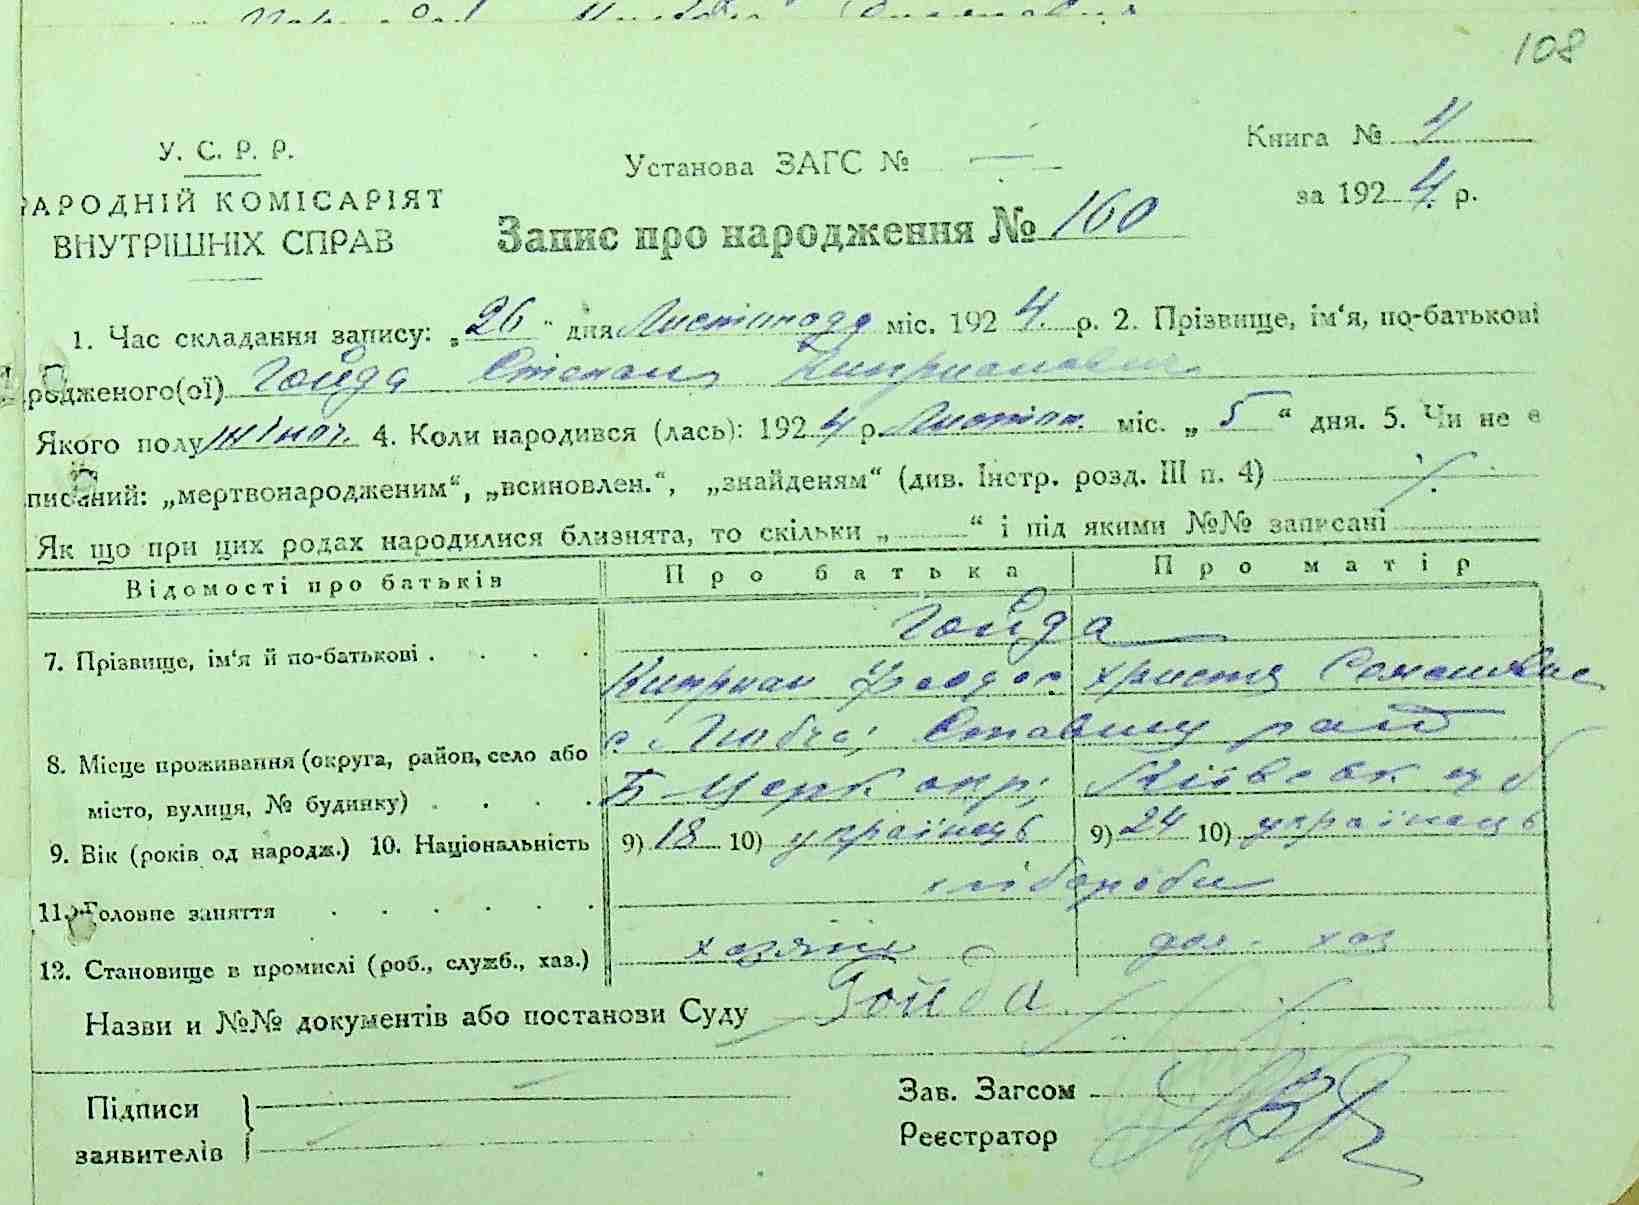 108
У. С. Р. Р.
АРОДНІЙ КОМІСАРІЯТ
ВНУТРІШНІХ СПРАВ
Установа ЗАГС № —
Книга № 4
за 1924 р.
Запис про народження № 160
1. Час складання запису: „26" дня Листопода міс. 1924 р. 2. Прізвище, ім'я, по-батькові
родженого(ої) Гойда Степан Киприанович
Якого полу жіноч. 4. Коли народився (лась): 1924 р. Листоп. міс. „5" дня. 5. Чи не є
писаний: „мертвонародженим", „всиновлен.", „знайденям" (див. Інстр. розд. III п. 4)
Як що при цих родах народилися близнята, то скільки „ " і під якими №№ записані
Відомості про батьків Про батька Про матір
7. Прізвище, ім'я й по-батькові . . . . Гойда
Киприан Феодос Христя
8. Місце проживання (округа, район, село або с Любча; Ставищ район
місто, вулиця, № будинку) . . . . Б Церк окр; Київськ губ
9. Вік (років од народж.) 10. Національність 9) 18 10) українець 9) 24 10) українець
11. Головне заняття . . . . . . хлібороби
12. Становище в промислі (роб., служб., хаз.) хозяїн дом. хоз
Назви и №№ документів або постанови Суду Гойда
Підписи
заявителів
Зав. Загсом
Реєстратор